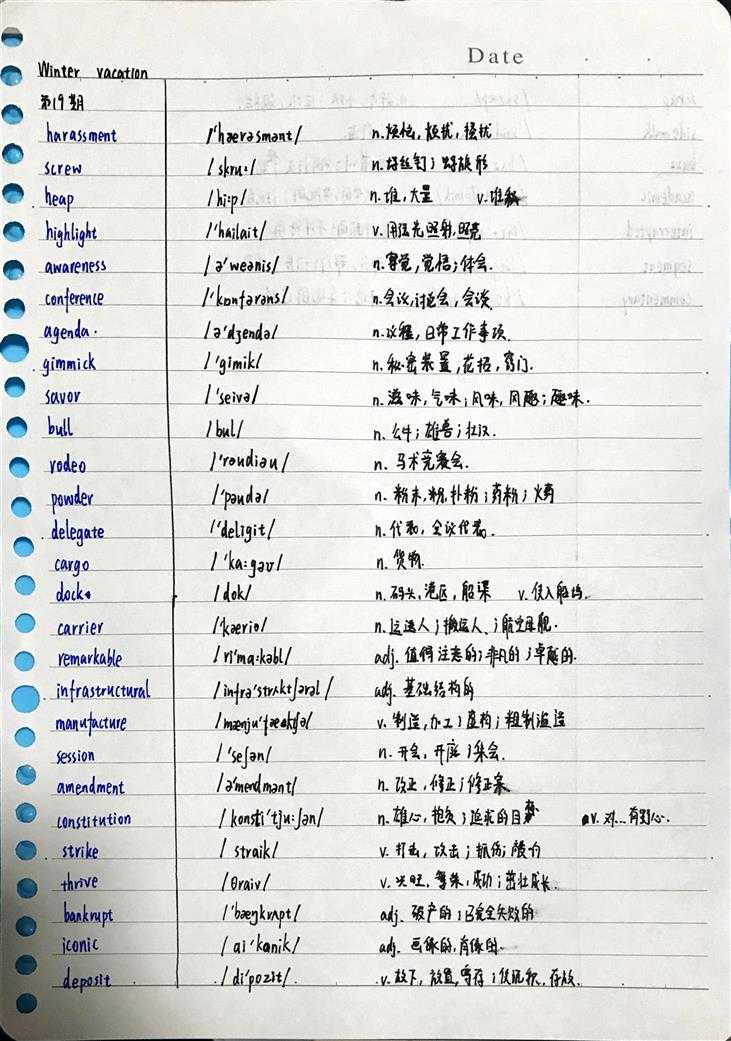 Date
Winter vacation
第19期
harassment /'hærəsmənt/ n.烦恼,烦扰,骚扰
screw /skru:/ n.螺丝钉;螺旋形
heap /hi:p/ n.堆,大量 v.堆积
highlight /'hailait/ v.用强光照射,照亮
awareness /ə'weənis/ n.察觉,觉悟;体会.
conference /'kɒnfərəns/ n.会议,讨论会,会谈.
agenda. /ə'dʒendə/ n.议程,日常工作事项.
gimmick /'gimik/ n.秘密装置,花招,窍门.
savor /'seivə/ n.滋味,气味;风味,风趣;趣味.
bull /bul/ n.公牛;雄兽;壮汉.
rodeo /'rəudiəu/ n.马术竞赛会.
powder /'paudə/ n.粉末,粉,扑粉;药粉;火药
delegate /'deligit/ n.代表,会议代表.
cargo /'ka:gəʊ/ n.货物.
dock. /dok/ n.码头,港区,船渠 v.使入船坞.
carrier /'kæriə/ n.运送人;搬运人;航空母舰.
remarkable /ri'ma:kəbl/ adj.值得注意的;非凡的;卓越的.
infrastructural /infrə'strʌktʃərəl/ adj.基础结构的
manufacture /mænju'fæektʃə/ v.制造,加工;虚构;粗制滥造
session /'seʃən/ n.开会,开庭;集会.
amendment /ə'mendmənt/ n.改正,修正;修正案.
constitution /konsti'tju:ʃən/ n.雄心,抱负;追求的目 v.对...有野心.
strike /straik/ v.打击,攻击;抓伤;
thrive /θraiv/ v.兴旺,繁殖,成功;茁壮成长.
bankrupt /'bæŋkrʌpt/ adj.破产的;已完全失败的
iconic /ai'kɑnik/ adj.画像的,肖像的.
deposit /di'pozit/. v.放下,放置,寄存;使沉积,存放.